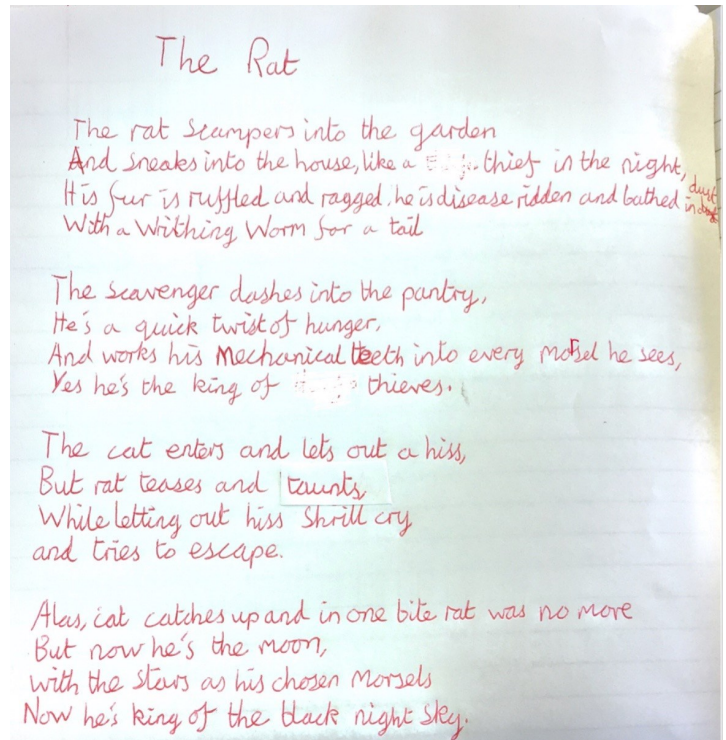 The Rat
The rat scampers into the garden
And sneaks into the house, like a thief in the night,
His fur is ruffled and ragged, he is disease ridden and bathed in dust
With a Writhing Worm for a tail
The scavenger dashes into the pantry,
He's a quick twist of hunger,
And works his Mechanical teeth into every morsel he sees,
Yes he's the king of thieves.
The cat enters and lets out a hiss,
But rat teases and taunts
While letting out hiss Shrill cry
and tries to escape.
Alas, cat catches up and in one bite rat was no more
But now he's the moon,
with the Stars as his chosen Morsels
Now he's king of the black night Sky.